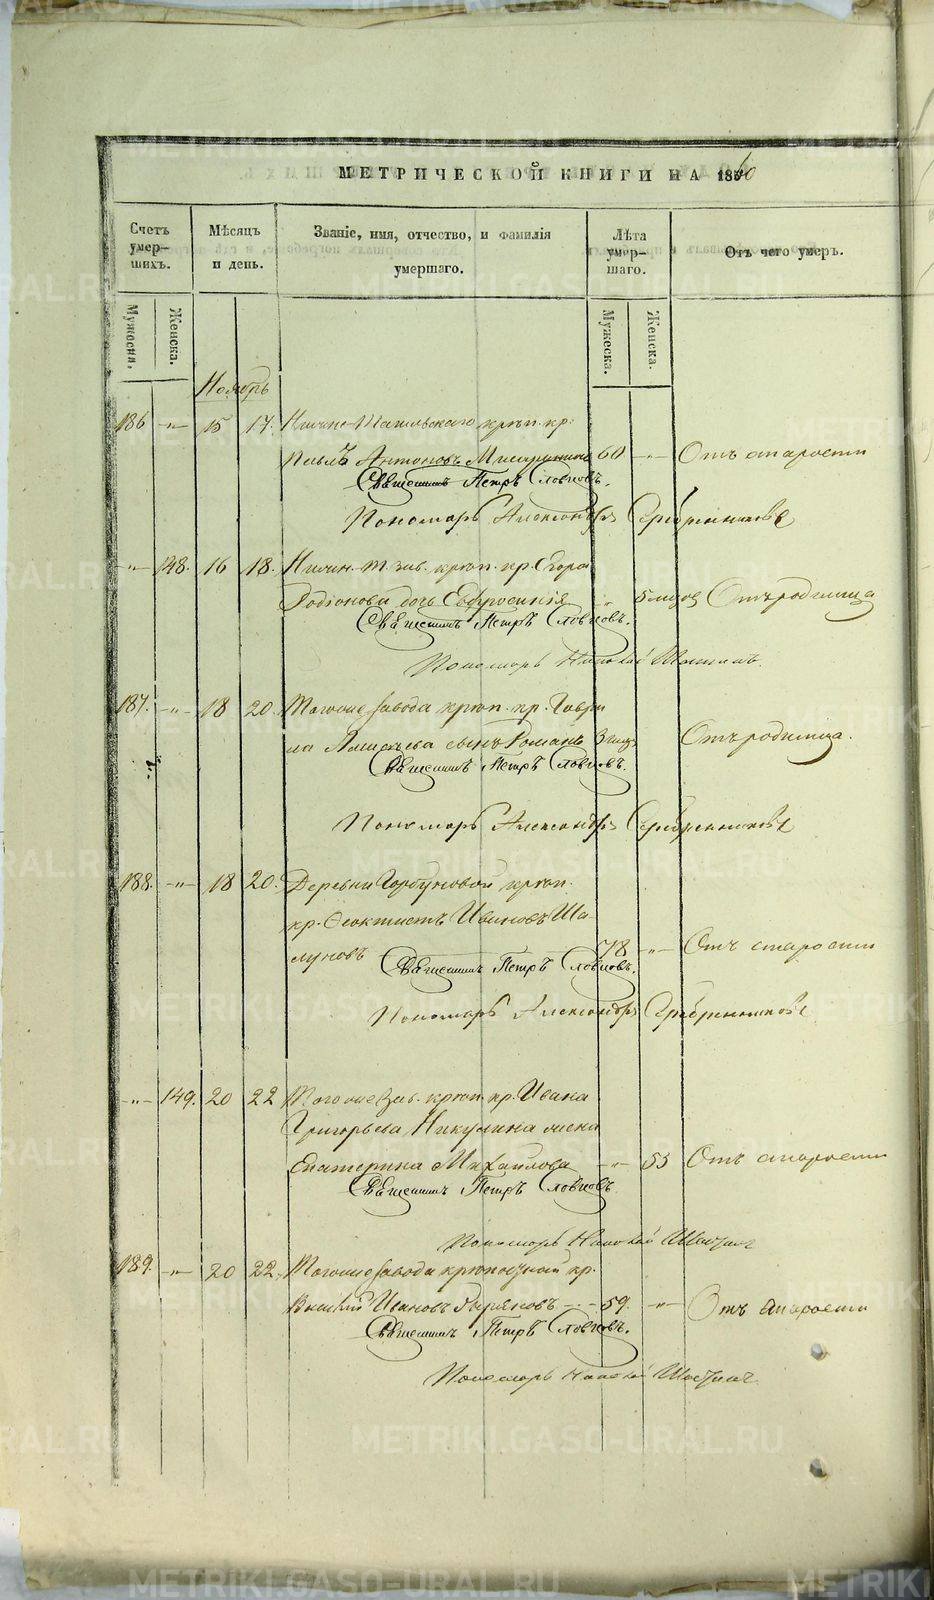 МЕТРИЧЕСКОЙ КНИГИ НА 1860
Счетъ умер-шихъ.
Мѣсяцъ и день.
Званіе, имя, отчество, и фамилія умершаго.
Лѣта умер-шаго.
Отъ чего умеръ.
Мужеска.
Женска.
Мужеска.
Женска.
Ноябрь
186 -"- 15 17. Нижне-Тагильскаго крѣп. кр.
Павелъ Антоновъ 60 -"- Отъ старости
Священникъ Петръ Словцовъ.
Пономарь Александръ Серебренниковъ
-"- 148. 16 18. Нижн. Т. зав. крѣп. кр. Егора
Родіонова дочь Евфросинія " 5 Отъ родимца
Священникъ Петръ Словцовъ.
Пономарь Николай
187. -"- 18 20. Тогоже завода крѣп. кр. Гаври
ла сынъ Романъ 3 Отъ родимца.
Священникъ Петръ Словцовъ.
Пономарь Александръ Серебренниковъ
188. -"- 18 20. Деревни Горбуновой крѣп.
кр. Феоктистъ Ивановъ Ша-
луновъ 78 -"- Отъ старости
Священникъ Петръ Словцовъ.
Пономарь Александръ Серебренниковъ
-"- 149. 20 22 Тогоже зав. крѣп. кр. Ивана
Григорьева Никулина жена
Екатерина Михайлова -"- 55 Отъ старости
Священникъ Петръ Словцовъ
Пономарь Николай
189. -"- 20 22. Тогоже завода крѣпостной кр.
Василій Ивановъ 59. -"- Отъ старости
Священникъ Петръ Словцовъ.
Пономарь Николай
METRIKI.GASO-URAL.RU